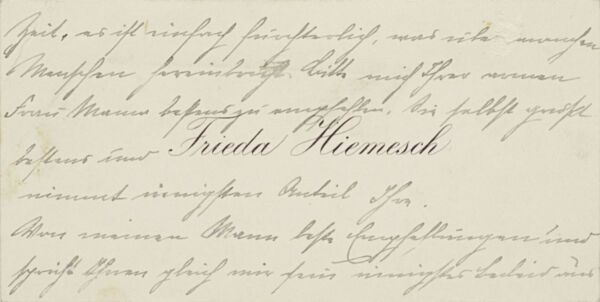 Zeit, es ist einfach fürchterlich, was über manchen
Menschen hereinbricht. Bitte mich Ihrer armen
Frau Mama bestens zu empfehlen. Sie selbst grüßt
bestens und Frieda Hiemesch
nimmt innigsten Anteil Ihre.
Von meinen Mann beste Empfehlungen und
spricht Ihnen gleich mir sein innigstes beileid aus